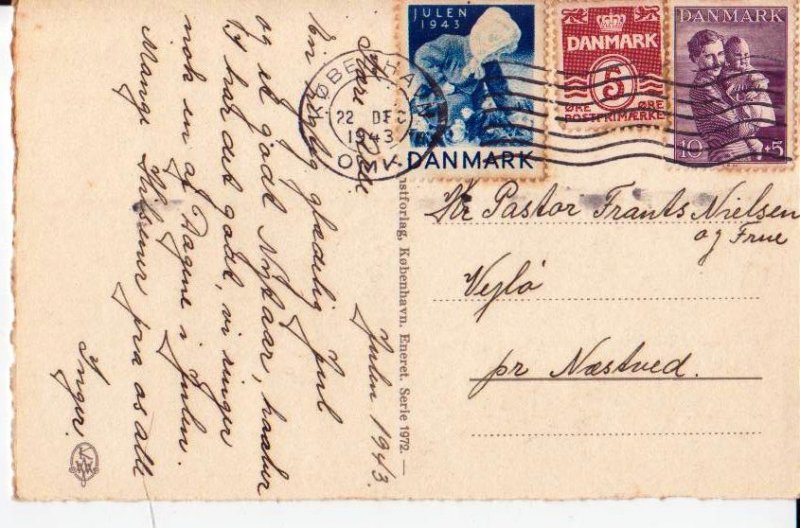 Julen 1943.
Kære
En rigtig glædelig Jul
og et godt Nytaar, haaber
I har det godt, vi ringer
nok en af Dagene i Julen.
Mange Hilsener fra os alle
Inger.
JULEN
1943
DANMARK
DANMARK
5
ØRE ØRE
POSTFRIMÆRKE
DANMARK
10 +5
KØBENHAVN
22 DEC
1943
OMV.
Kunstforlag, København. Eneret. Serie 1972. —
Hr Pastor Frants Nielsen
og Frue
Vejlø
pr Næstved.